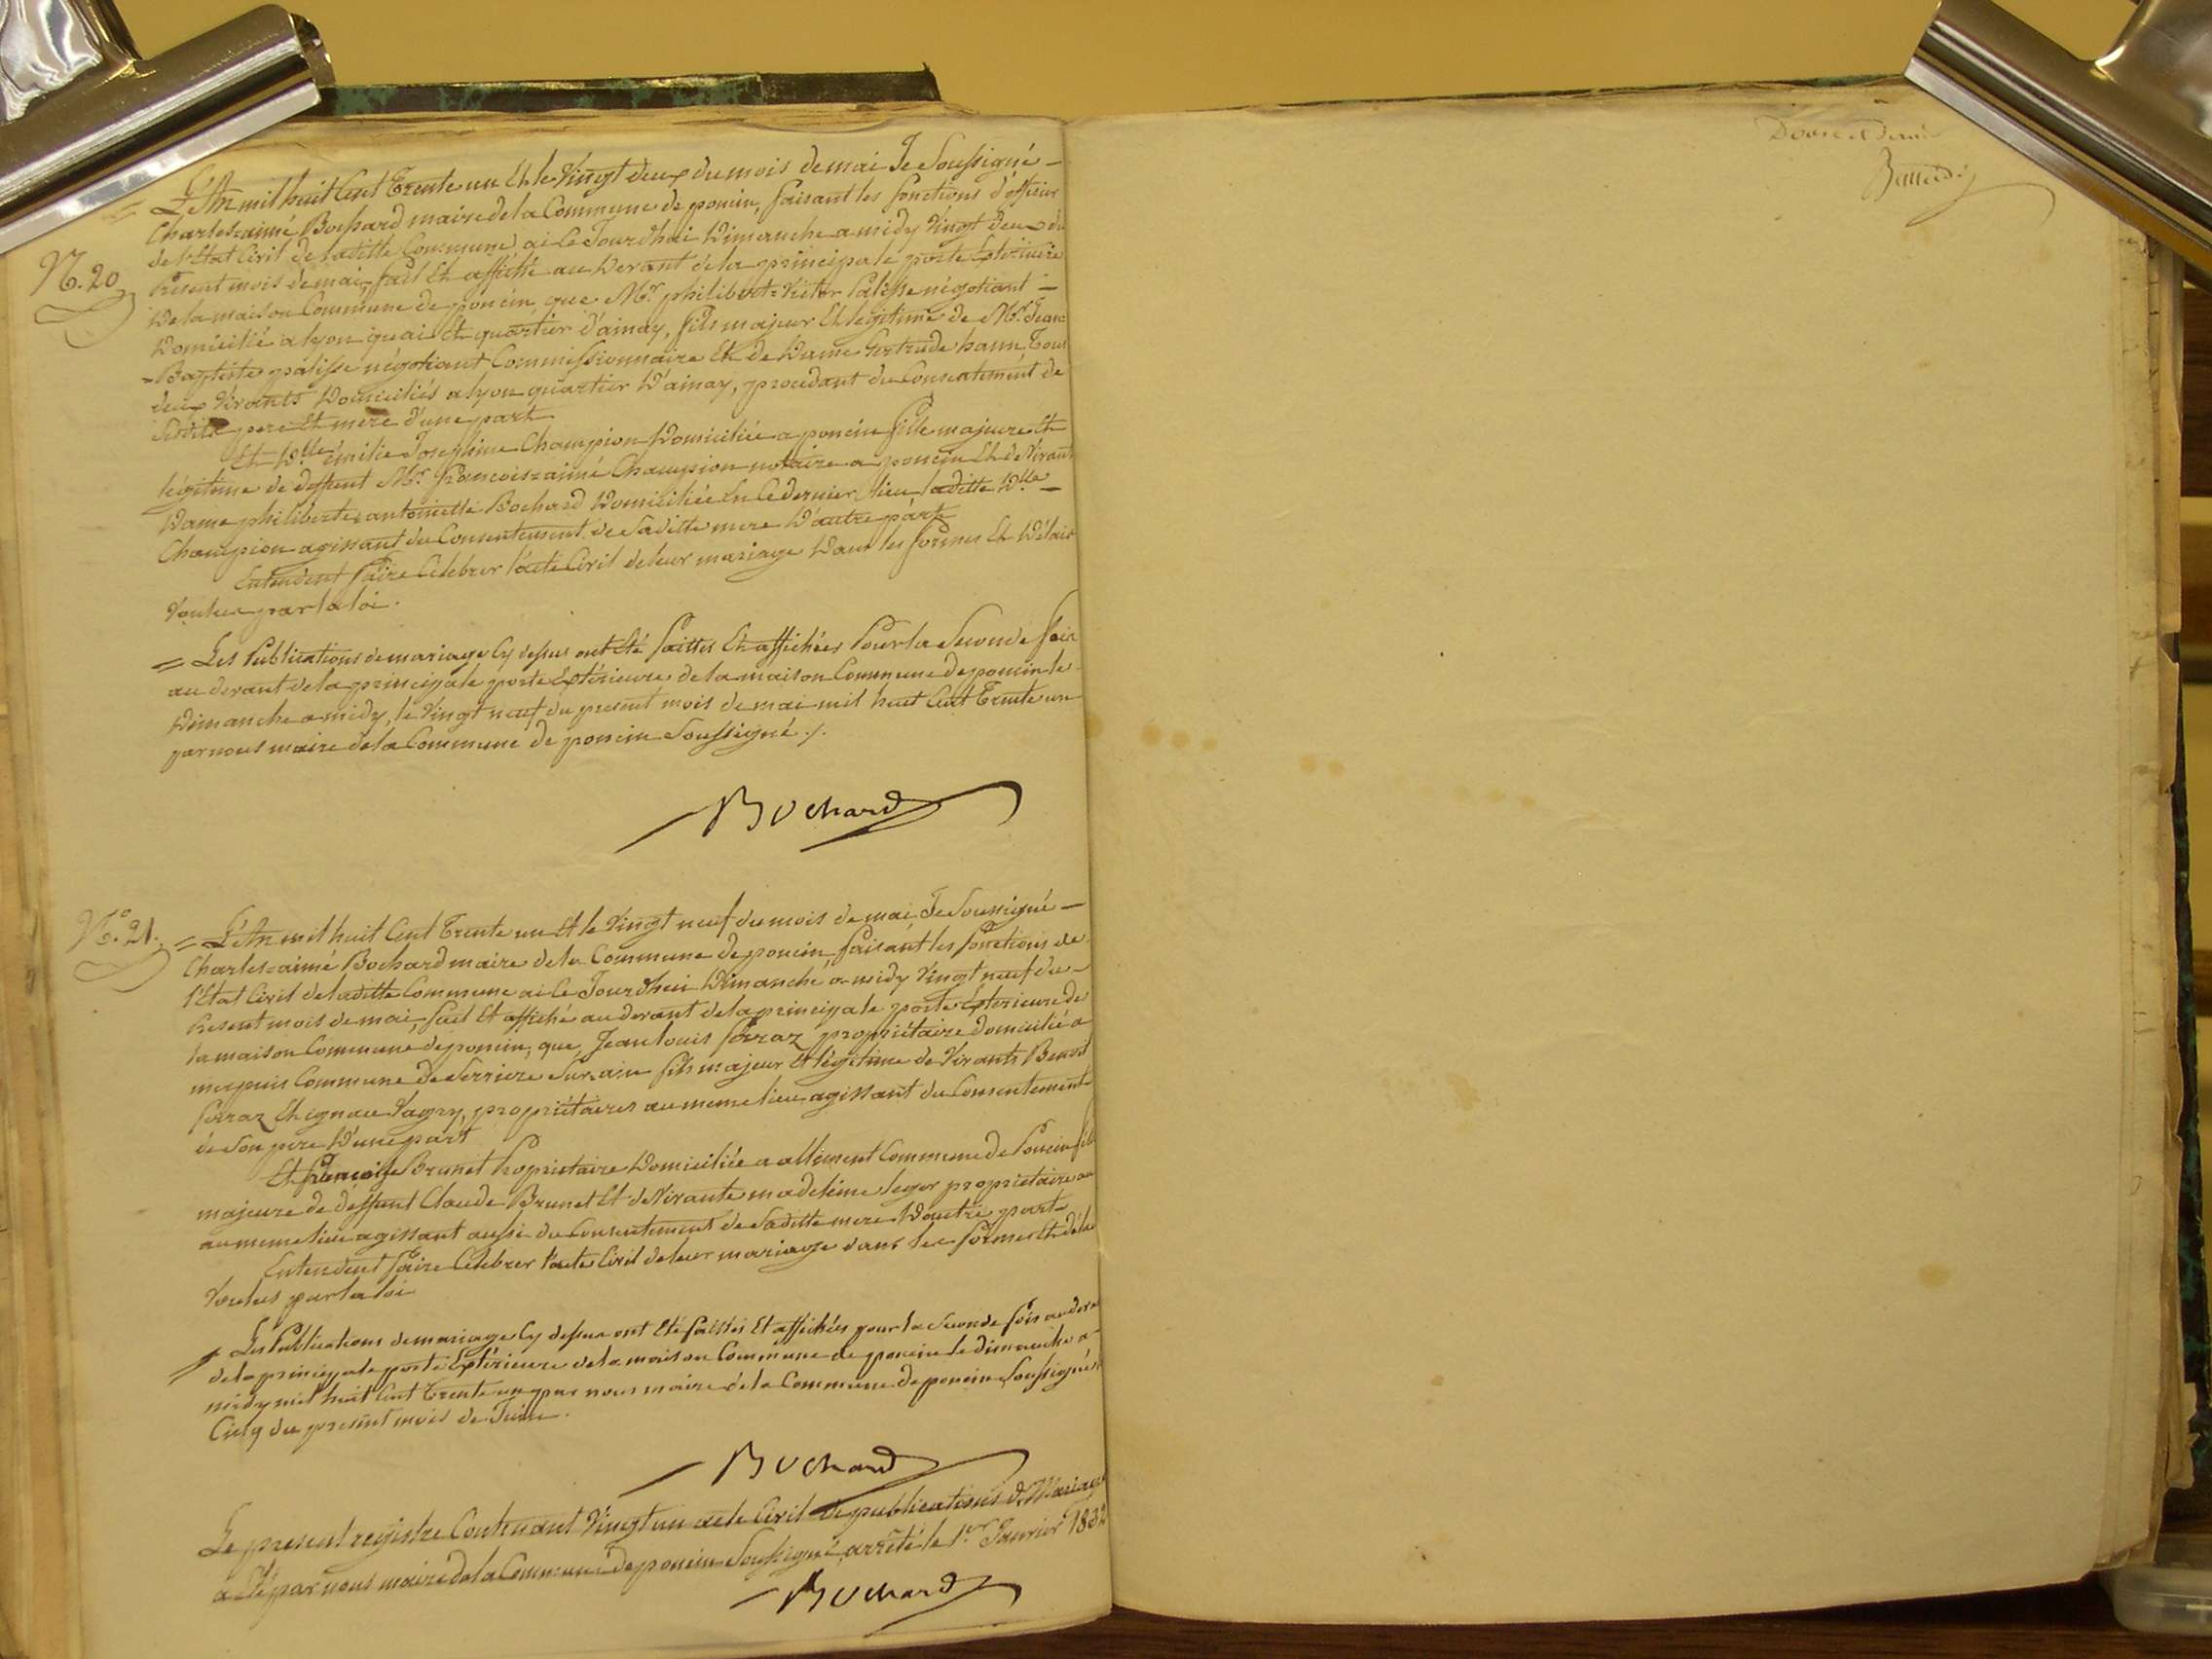 L'An mil huit Cent Trente un Et le Vingt deux du mois de mai Je Soussigné –
Charles=aimé Bochard maire de la Commune de poncin, faisant les fonctions d'officier
N°. 20
de l'Etat Civil de laditte Commune ai Ce Jourdhui Dimanche a midy Vingt deux du
Présent mois de mai, fait Et affiché au devant de la principale porte Extérieure
De la maison Commune de poncin, que Mr. philibert=Victor Palisse négotiant –
Domicilié a lyon quai Et quartier d'ainay, fils majeur Et légitime de Mr. Jean
=Baptiste palisse négotiant Commissionnaire Et de Dame Gertrude hann Tous
deux Vivants Domiciliés a lyon quartier D'ainay, procedant du Consentement de
Sesdits pere Et mère d'une part
Et Dlle. émilie Josephine Champion Domiciliée a poncin fille majeure Et
légitime de deffunt Mr. francois=aimé Champion notaire a poncin Et de Vivante
Dame philiberte=antoinette Bochard Domiciliée En Ce dernier lieu laditte Dlle –
Champion agissant du Consentement de Saditte mere D'autre part
Entendent faire Celebrer l'acte Civil de leur mariage Dans les formes Et Délais
Voulues par la loi.
= Les Publications de mariage Cy dessus ont Eté faittes Et affichées Pour la Seconde fois
au devant de la principale porte Extérieure de la maison Commune de poncin le
Dimanche a midy, le Vingt neuf du present mois de mai mil huit Cent Trente un
par nous maire de la Commune de poncin Soussigné ./.
Bochard
N°. 21.
= L'An mil huit Cent Trente un Et le Vingt neuf du mois de mai Je Soussigné –
Charles=aimé Bochard maire de la Commune de poncin faisant les fonctions de
l'Etat Civil de laditte Commune ai Ce Jourdhui Dimanche a midy Vingt neuf du –
Present mois de mai, fait Et affiché au devant de la principale porte Exterieure de
la maison Commune de poncin, que Jean louis propriétaire domicilié a
Commune de Serriere Sur ain fils majeur Et légitime de Vivants Benoit
Et propriétaires au meme lieu agissant du Consentement
de Son pere D'une part
Et françoise Brunet Propriétaire Domiciliée a allement Commune de Poncin fille
majeure de deffunt Claude Brunet Et de Vivante madeleine leger propriétaire au
au meme lieu agissant aussi du Consentement de Saditte mere D'autre part
Entendent faire Celebrer l'acte Civil de leur mariage dans les formes Et délais
Voulus par la loi
= Les Publications de mariage Cy dessus ont Eté faittes Et affichées pour la Seconde fois au devant
de la principale porte Extérieure de la maison Commune de poncin le dimanche a
midy mil huit Cent Trente un par nous maire de la Commune de poncin Soussigné
Cinq du present mois de Juin.
Bochard
Le present registre Contenant Vingt un acte Civil de publications de Mariage
a Eté par nous maire de la Commune de poncin Soussigné, arrêté le 1er. Janvier 1832
Bochard